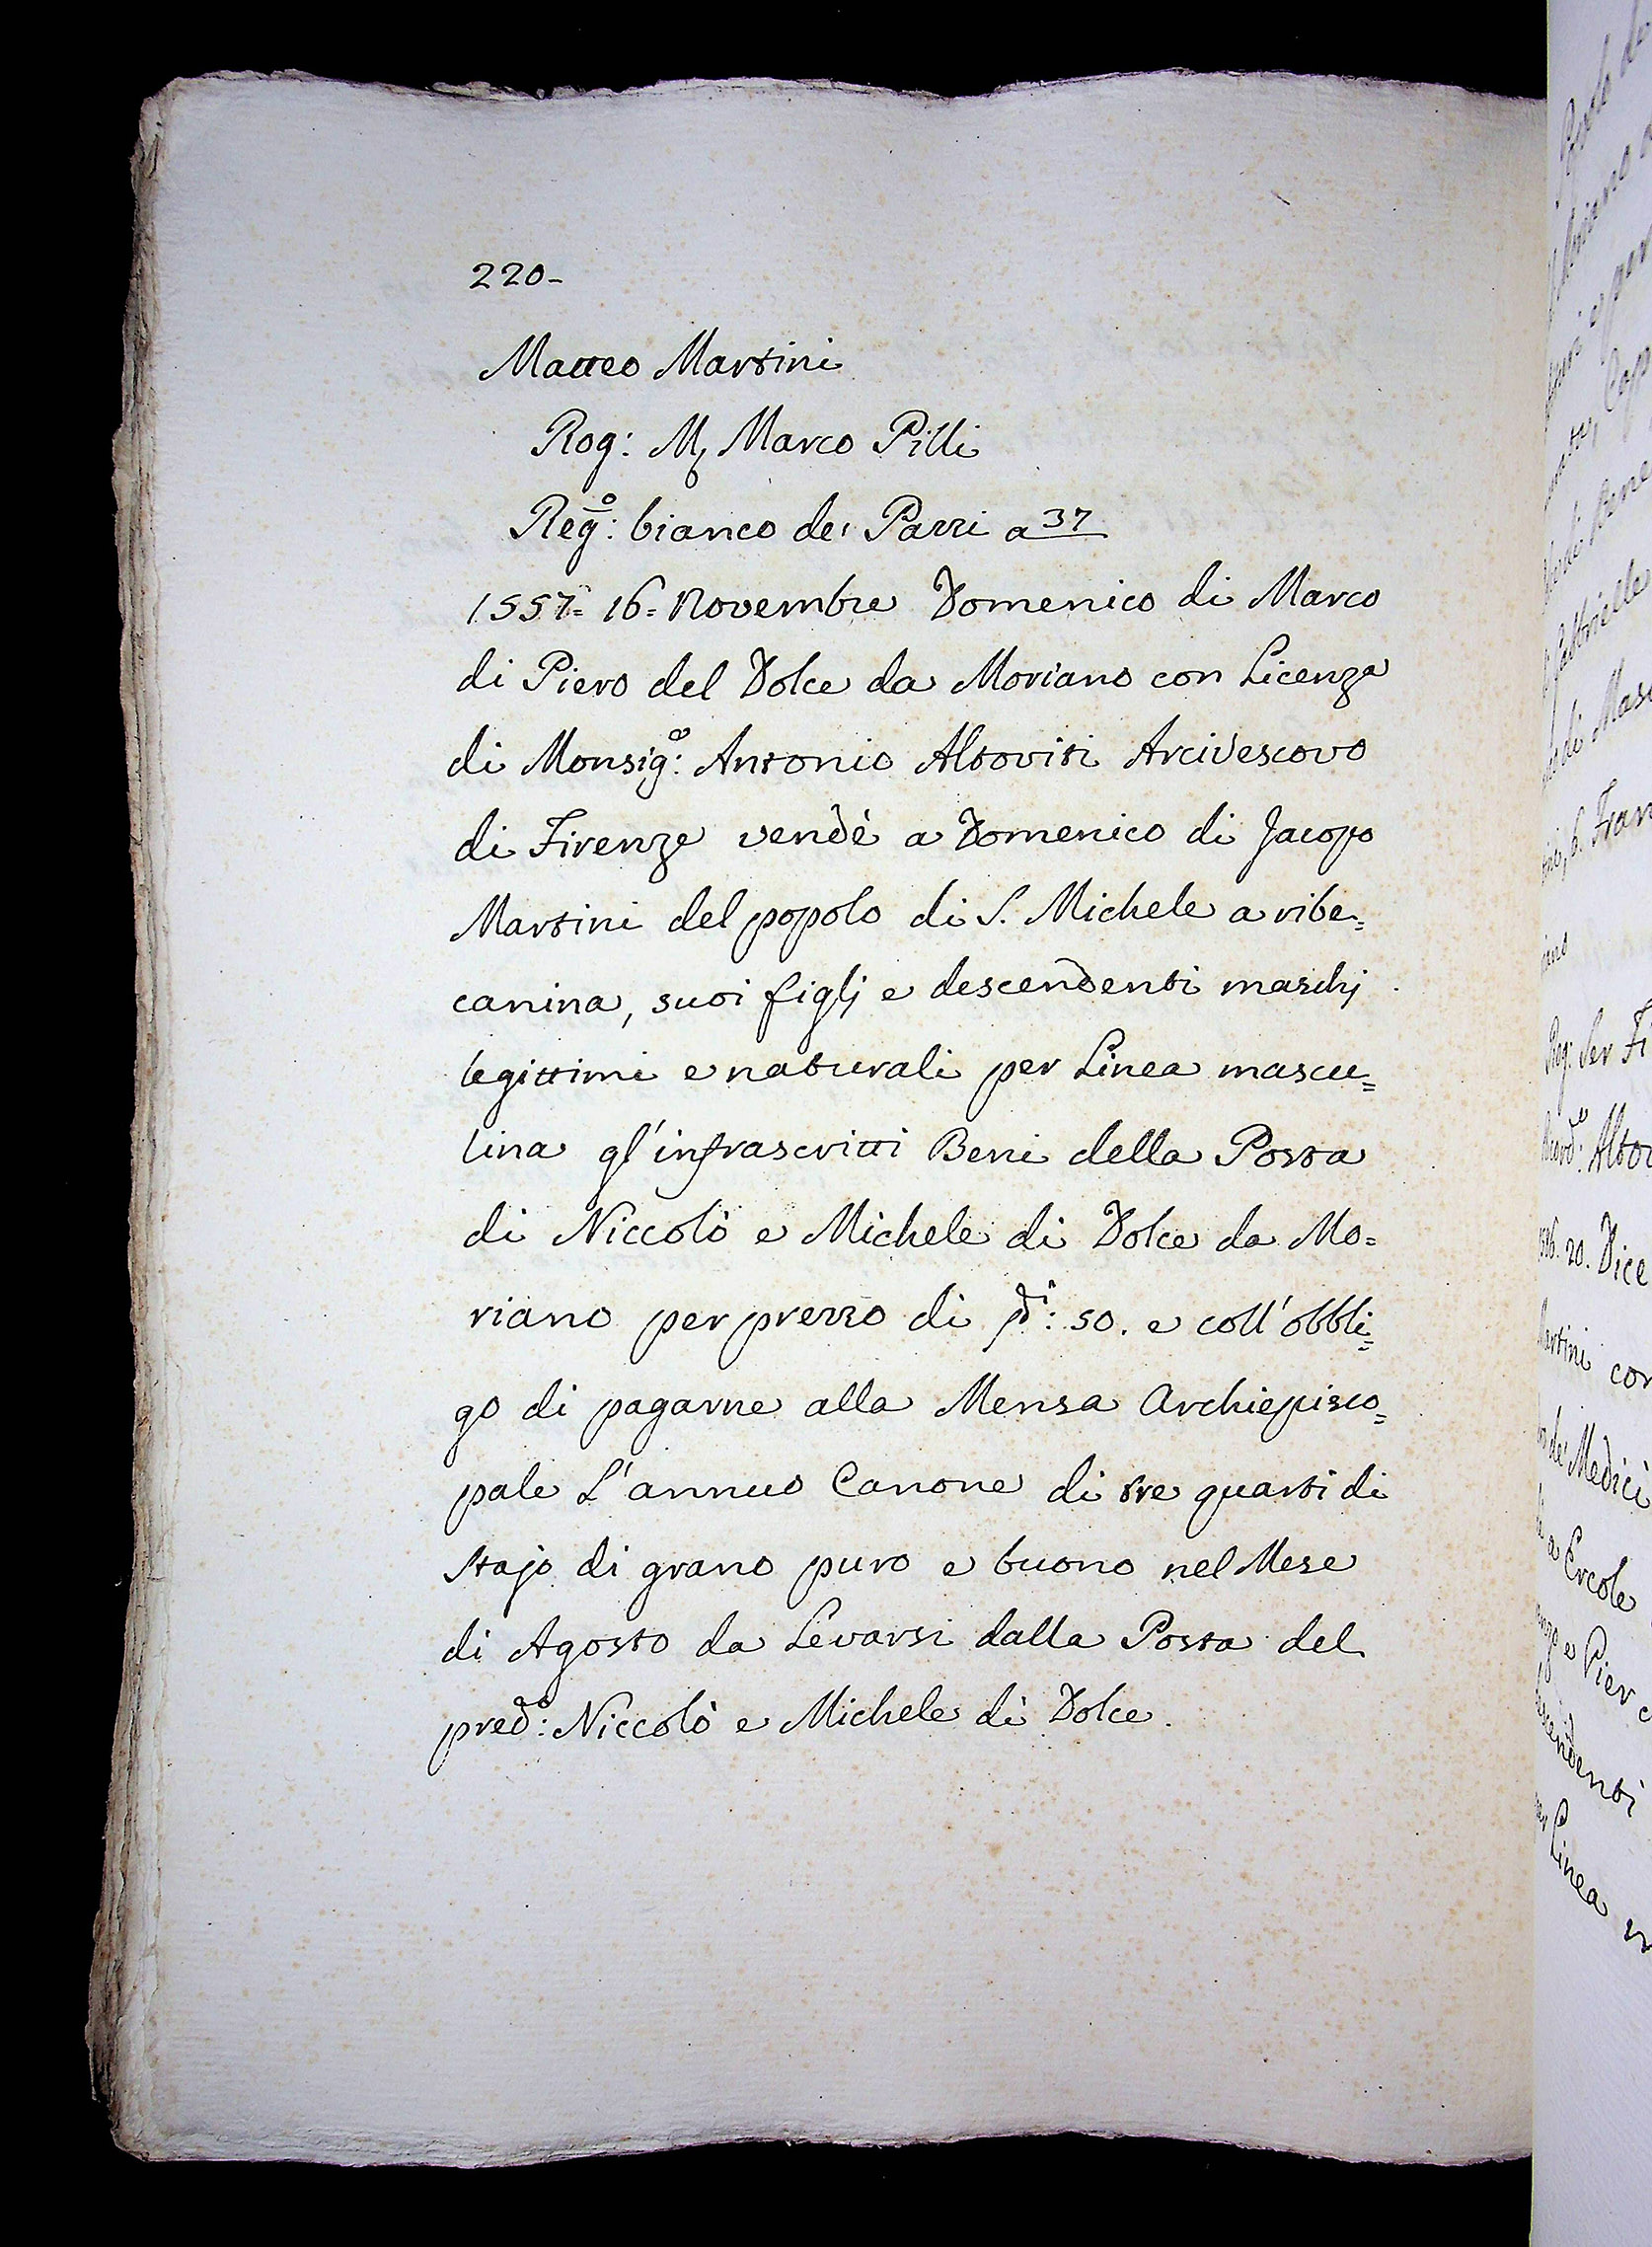 220-
Matteo Martini
Rog: M, Marco Pilli
Reg:º bianco de' Pazzi a 37
1557= 16= Novembre Domenico di Marco
di Piero del Dolce da Moriano con Licenza
di Monsig:e Antonio Altoviti Arcivescovo
di Firenze vendè a Domenico di Jacopo
Martini del popolo di S. Michele a ribe=
canina, suoi figlj e descendenti maschj
legittimi e naturali per Linea mascu=
lina gl'infrascritti Beni della Posta
di Niccolò e Michele di Dolce da Mo=
riano per prezzo di di: 50. e coll'obbli=
go di pagarne alla Mensa Archiepisco=
pale L'annuo Canone di tre quarti di
stajo di grano puro e buono nel Mese
di Agosto da Levarsi dalla Posta del
pred:º Niccolò e Michele di Dolce.
Reg: Ser Fi
20. Dice
Martini con
de' Medici
a Ercole
e Pier
descendenti
Linea